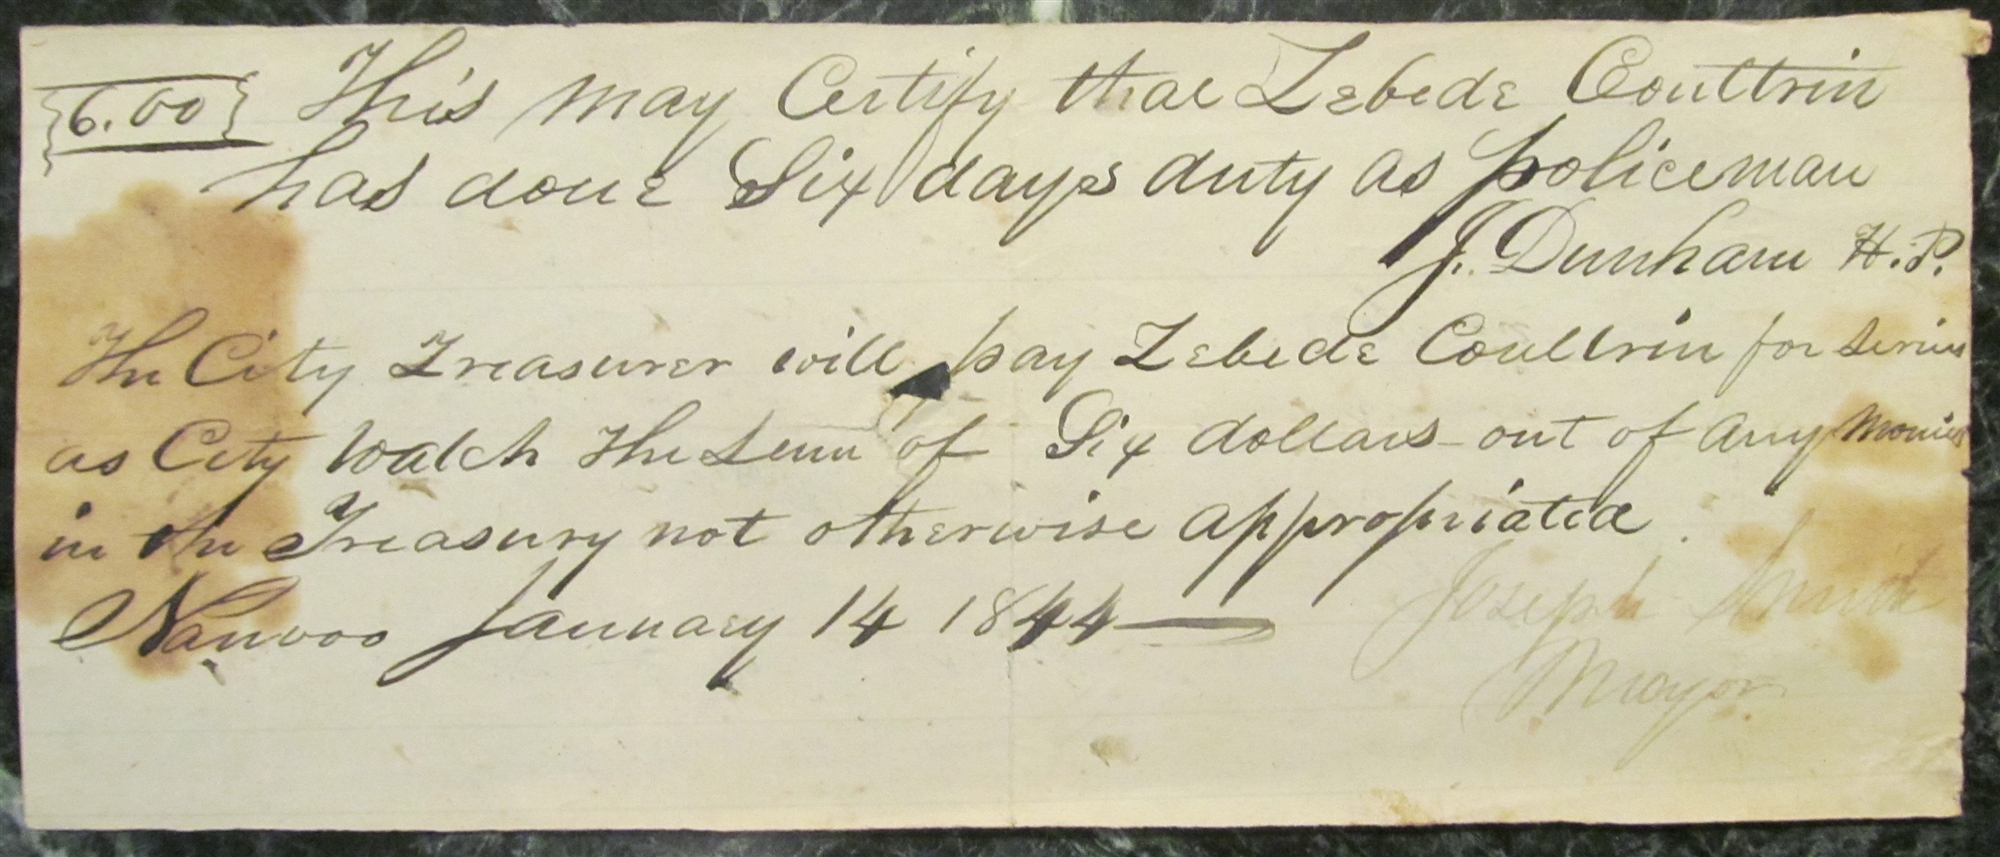 6.00 This may Certify that Zebede Coultrin
has done Six days duty as policeman
J. Dunham H.P.
The City Treasurer will pay Zebede Coultrin for servies
as City Watch the sum of Six dollars out of any monies
in the Treasury not otherwise appropriated.
Nauvoo January 14 1844
Joseph Smith
Mayor